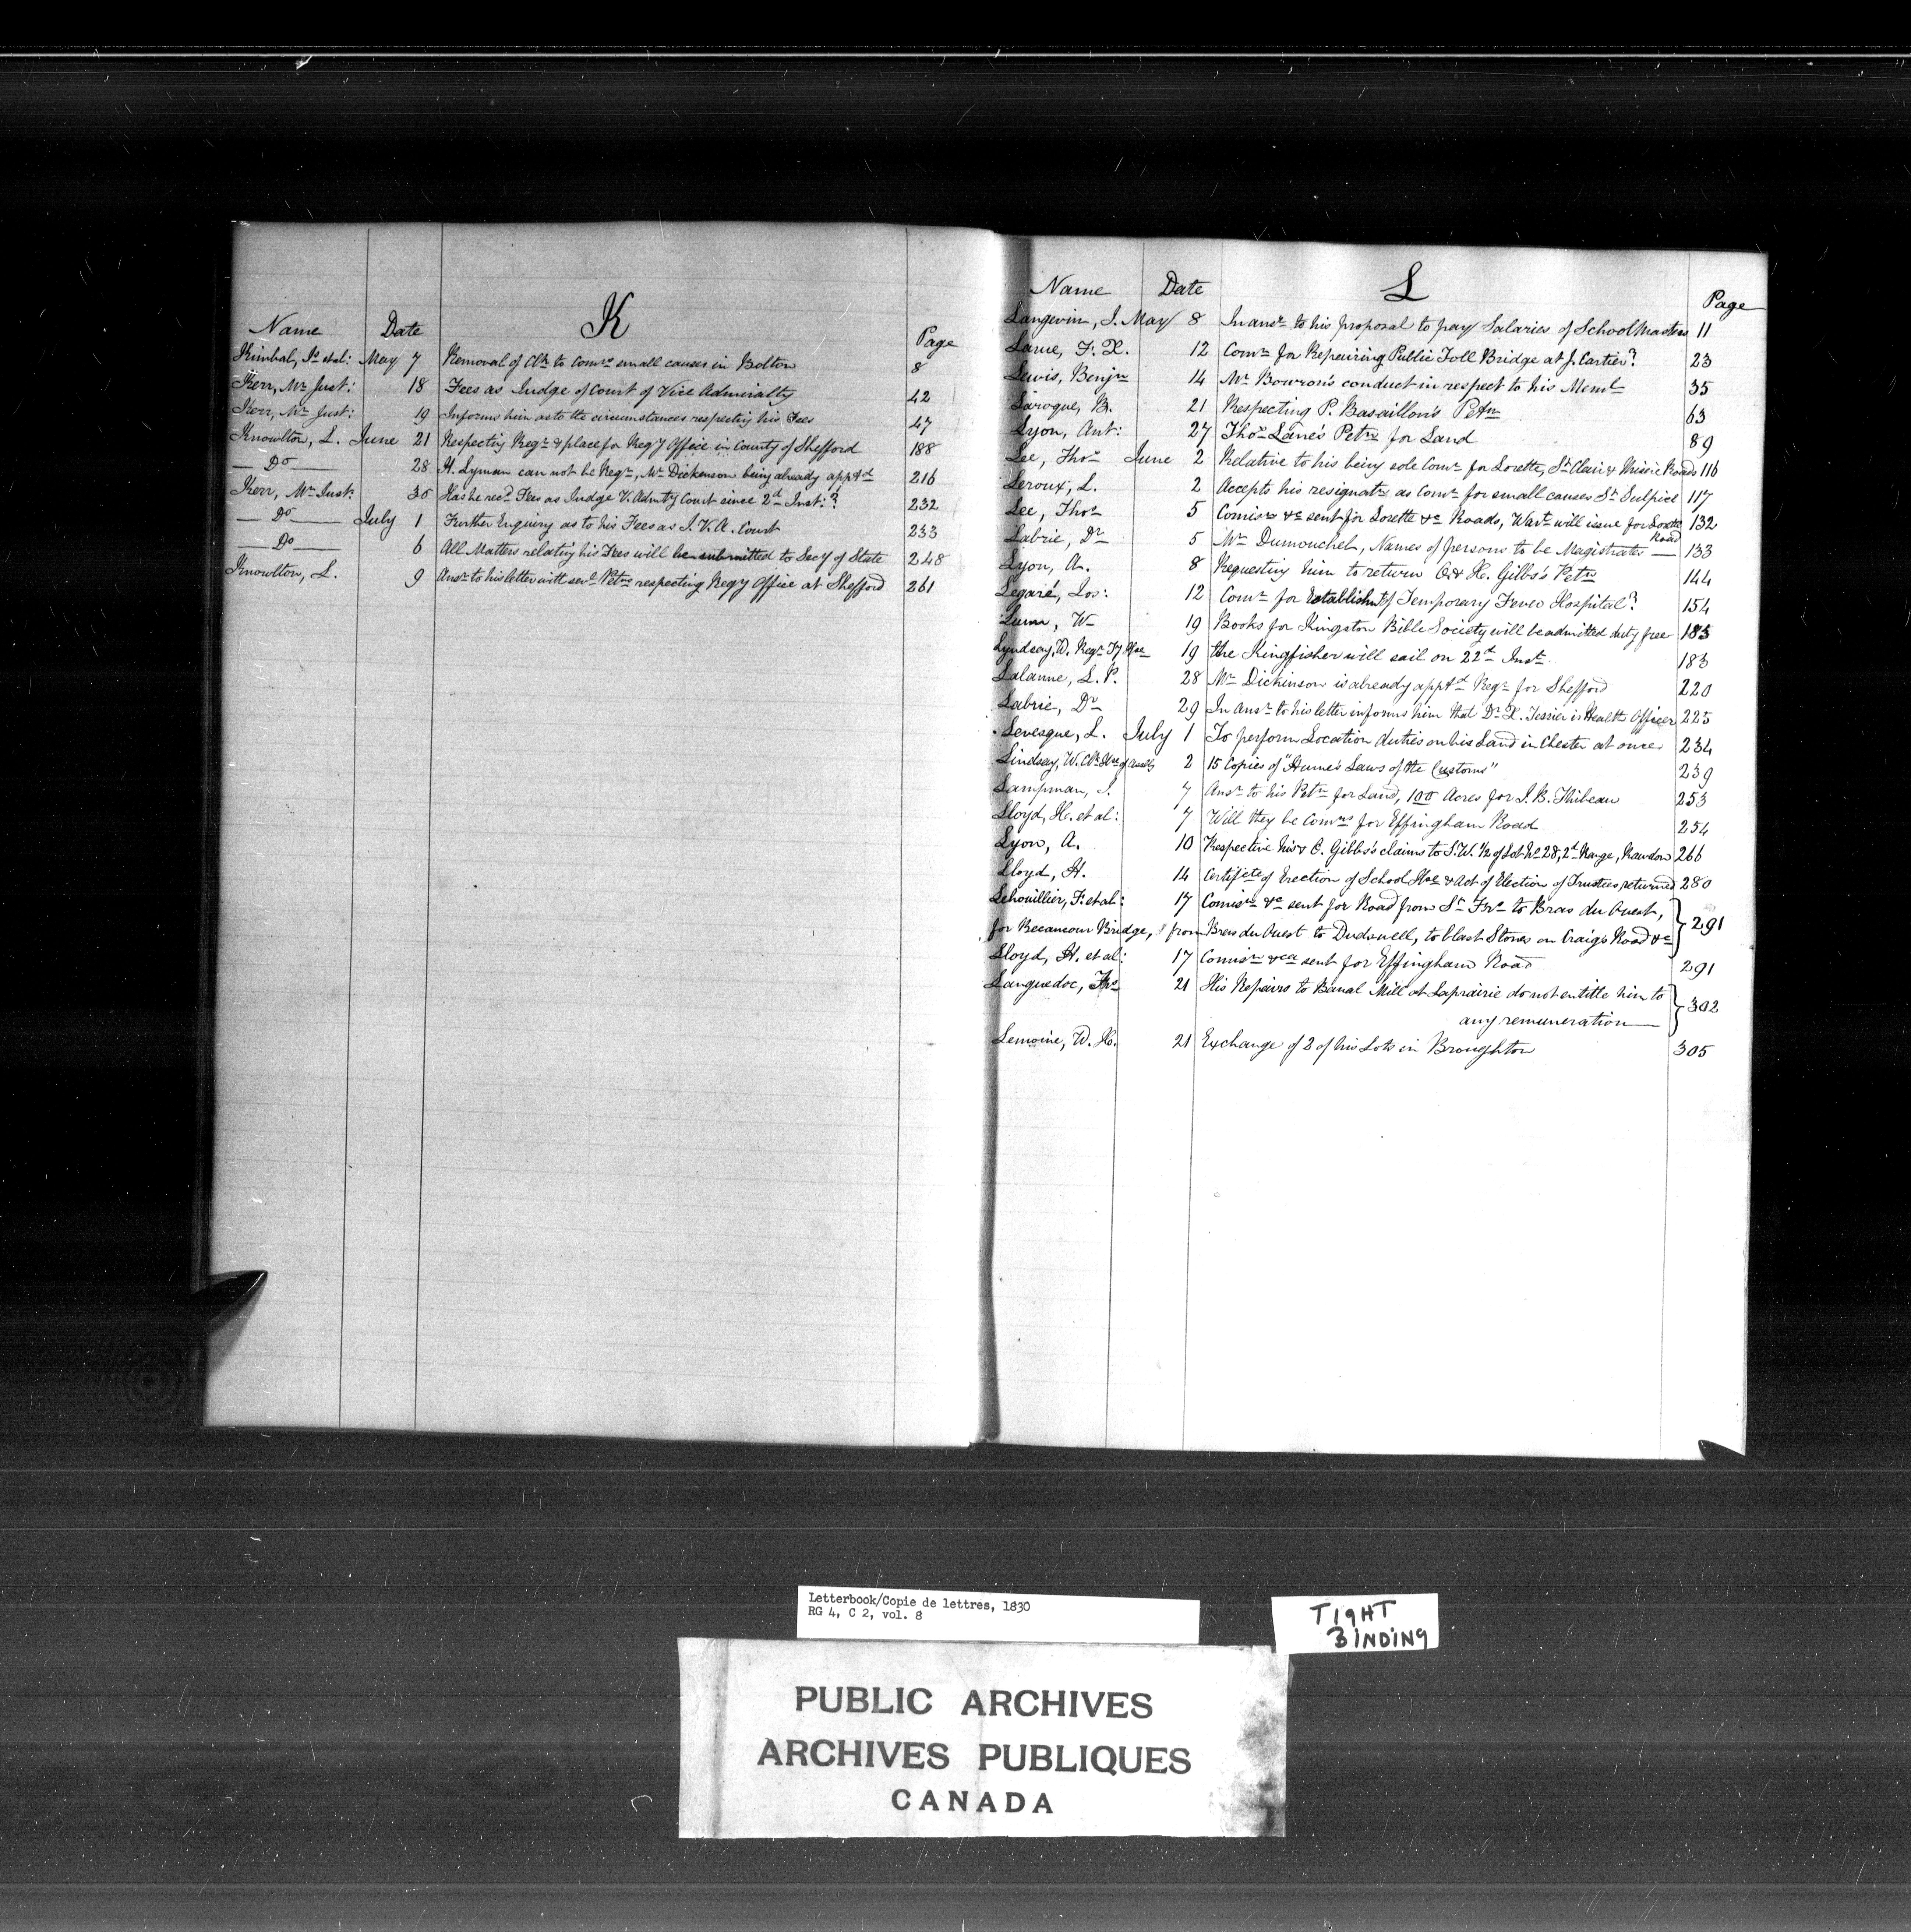 K
Name Date Page
Kimbal, Is. et al: May 7 Removal of Clk to Comrs small causes in Bolton 8
Kerr, Mr Just: 18 Fees as Judge of Court of Vice Admiralty 42
Kerr, Mr Just: 19 Informs him as to the circumstances respecting his Fees 47
Knowlton, L. June 21 Respecting Regr & place for Reg'y Office in County of Shefford 188
— Do — 28 H. Lyman can not be Regr, Mr Dickenson being already appt'd 216
Kerr, Mr Just. 30 Has he recd Fees as Judge V. Adm'ty Court since 2d Inst:? 232
— Do — July 1 Further Enquiry as to his Fees as J. V. A. Court 233
— Do — 6 All Matters relating his Fees will be submitted to Sec'y of State 248
Knowlton, L. 9 Ansr to his letter with sevl Petns respecting Reg'y Office at Shefford 261
L
Name Date Page
Langevin, J. May 8 In ansr to his proposal to pay Salaries of School Masters 11
Larue, F. X. 12 Comr for Repairing Public Toll Bridge at J. Cartier? 23
Lewis, Benjn 14 Mr Bowron's conduct in respect to his Meml 35
Laroque, B. 21 Respecting P. Basaillon's Petn 63
Lyon, Ant: 27 Thos Lane's Petn for Land 89
Lee, Thos June 2 Relative to his being sole Comr for Lorette, St Clair & Roads 116
Leroux, L. 2 Accepts his resignatn as Comr for small causes St Sulpice 117
Lee, Thos 5 Comisn &c sent for Lorette &c Roads, Wart will issue for Lorette Road 132
Labrie, Dr 5 Mr Dumouchel, Names of persons to be Magistrates — 133
Lyon, A. 8 Requesting him to return O. & H. Gibbs's Petn 144
Legaré, Jos: 12 Comr for Establishmt of Temporary Fever Hospital? 154
Lunn, W 19 Books for Kingston Bible Society will be admitted duty free 183
Lyndsay, W. Regr Ty Hse 19 the Kingfisher will sail on 22d Inst. 183
Lalanne, L. P. 28 Mr Dickinson is already appt'd Regr for Shefford 220
Labrie, Dr 29 In Ansr to his letter informs him that Dr X. Tessier is Health Officer 225
Levesque, L. July 1 To perform Location duties on his Land in Chester at once 234
Lindsay, W. Clk Hse of Assy 2 15 Copies of "Hume's Laws of the Customs" 239
Lampman, J. 7 Ansr to his Petn for Land, 100 Acres for J. B. Thibeau 253
Lloyd, H. et al: 7 Will they be Comrs for Effingham Road 254
Lyon, A. 10 Respective his & O. Gibbs's claims to S. W. 1/2 of Lot No 28, 2d Range, Rawdon 266
Lloyd, H. 14 Certificte of Erection of School Hse & Act of Election of Trustees, returned 280
Lehouillier, F. et al: 17 Comisn &c sent for Road from St Frs to Bras du Ouest,
for Becancour Bridge, & from Bras du Ouest to Dudswell, to blast Stones on Craig's Road &c } 291
Lloyd, H. et al: 17 Comisn &ca sent for Effingham Road 291
Languedoc, Frs 21 His Repairs to Banal Mill at Laprairie do not entitle him to
any remuneration — } 302
Lemoine, W. H. 21 Exchange of 2 of his Lots in Broughton 305
Letterbook/Copie de lettres, 1830
RG 4, C 2, vol. 8
TIGHT
BINDING
PUBLIC ARCHIVES
ARCHIVES PUBLIQUES
CANADA